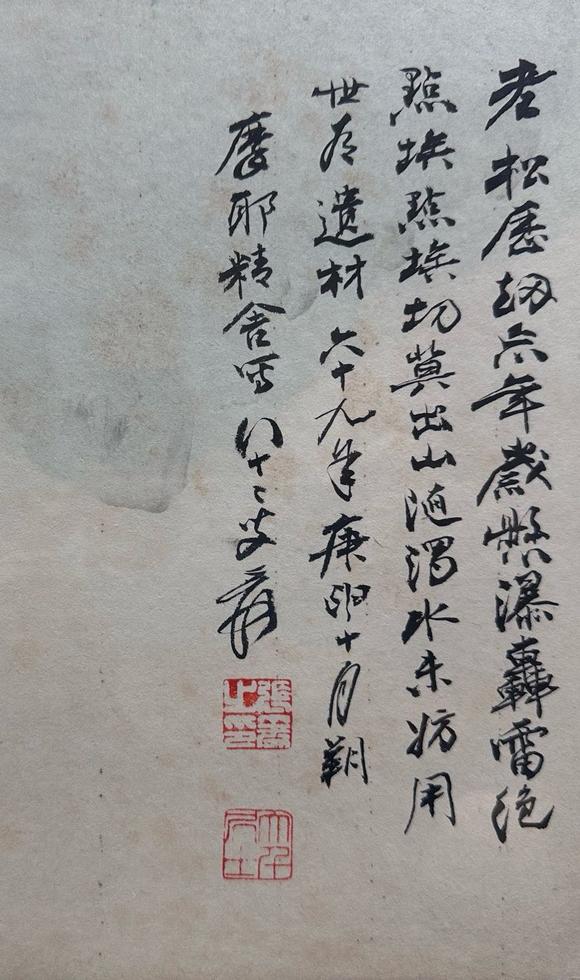 老松歷劫年歲懸瀑轟雷絕
點埃點埃切莫出山隨濁水未妨用
世有遺材 六十九年庚十月朔
摩耶精舍寫 八十二叟爰
張爰之印
大千居士